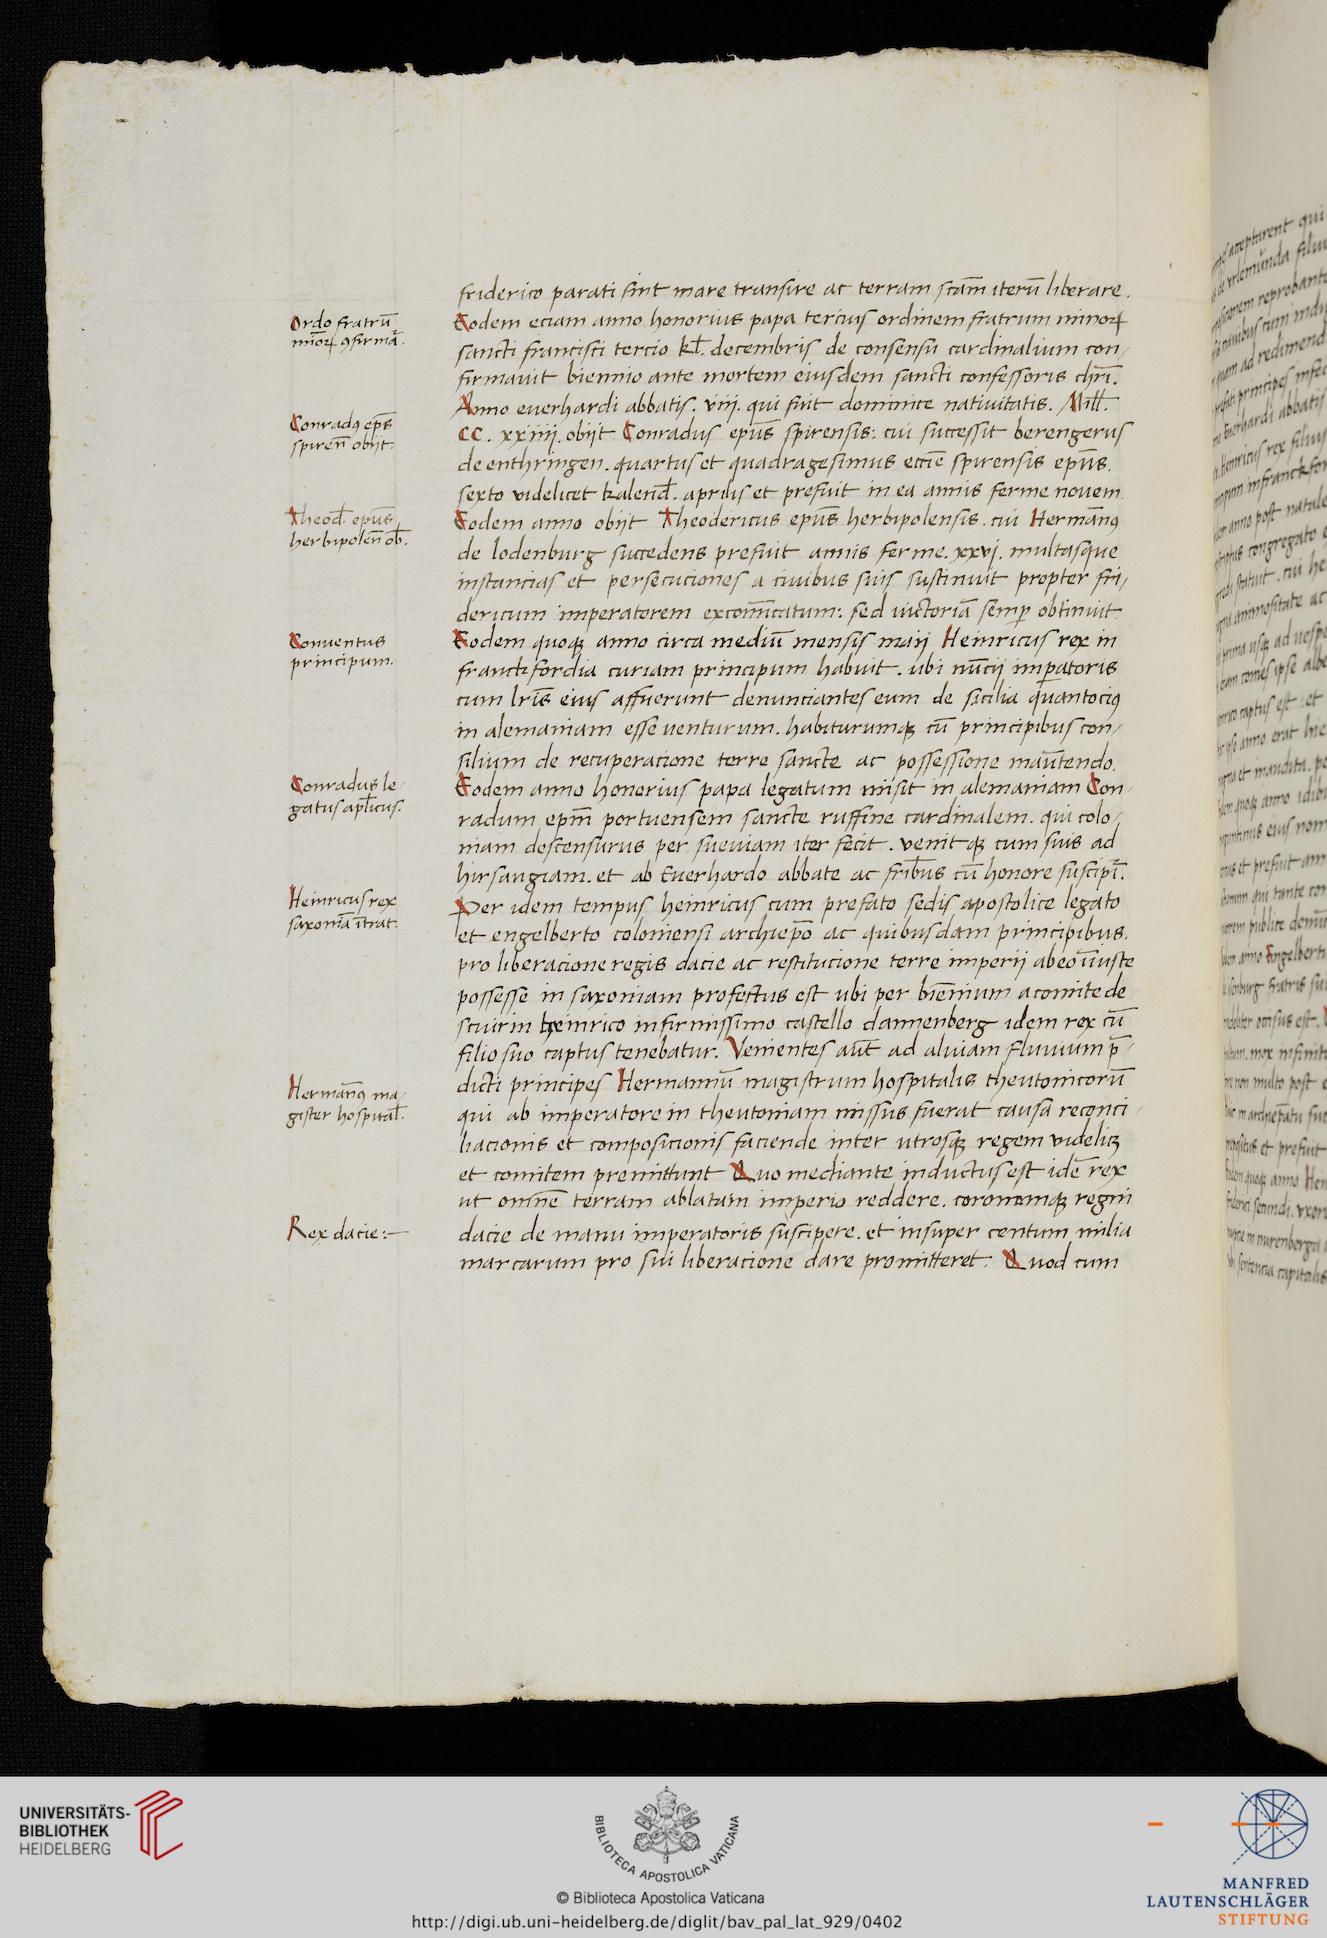 friderico parati sint mare transire ac terram scām iterū liberare.
Ordo fratrū
minoꝝ ꝯfirmā.
Eodem eciam anno honorius papa tercius ordinem fratrum minoꝝ
sancti francisci tercio kl̄. decembris de consensu cardinalium con/
firmavit biennio ante mortem eiusdem sancti confessoris chrī.
Anno everhardi abbatis. viij. qui fuit dominice nativitatis. Mill̄.
Conradꝰ ep̄s
spireñ obijt.
CC. xxiiij. obijt Conradus ep̄us spirensis: cui successit berengerus
de enthringen. quartus et quadragesimus eccīe spirensis ep̄us.
sexto videlicet kalend̄. aprilis et prefuit in ea annis ferme novem.
Theod̄. ep̄us
herbipoleñ ob̄.
Eodem anno obijt Theodericus ep̄us herbipolensis. cui Hermāñꝰ
de lodenburg succedens prefuit annis ferme. xxvj. multasque
instancias et persecuciones a civibus suis sustinuit propter fri/
dericum imperatorem excom̄icatum: sed victoriā semꝑ obtinuit.
Conventus
principum.
Eodem quoqꝫ anno circa mediū mensis maij Heinricus rex in
franckfordia curiam principum habuit. ubi nūcij imꝑatoris
cum lr̄is eius affuerunt denunciantes eum de sicilia quantociꝰ
in alemaniam esse venturum. habiturumqꝫ cū principibus con/
silium de recuperacione terre sancte ac possessione manūtendo.
Conradus le/
gatus ap̄licus.
Eodem anno honorius papa legatum misit in alemaniam Con
radum ep̄m portuensem sancte ruffine cardinalem. qui colo/
niam descensurus per sueviam iter fecit. venitqꝫ cum suis ad
hirsaugiam. et ab Everhardo abbate ac fr̄ibus cū honore suscipī.
Heinricus rex
saxoniā ītrat.
Per idem tempus heinricus cum prefato sedis apostolice legato
et engelberto coloniensi archiep̄o ac quibusdam principibus.
pro liberacione regis dacie ac restitucione terre imperii ab eo īniuste
possesse in saxoniam profectus est ubi per biēnium a comite de
scuirin heinrico in firmissimo castello dannenberg idem rex cū
filio suo captus tenebatur. Venientes aūt ad alviam fluvium p̄/
dicti principes Hermannū magistrum hospitalis theutonicorū
Hermāñꝰ ma/
gister hospital̄.
qui ab imperatore in theutoniam missus fuerat causa reconci/
liacionis et composicionis faciende inter utrosqꝫ regem videlicꝫ
et comitem premittunt Quo mediante inductus est idē rex
ut omnē terram ablatam imperio reddere. coronamqꝫ regni
Rex dacie:—
dacie de manu imperatoris suscipere. et insuper centum milia
marcarum pro sui liberacione dare promitteret: Quod cum
UNIVERSITÄTS-
BIBLIOTHEK
HEIDELBERG
BIBLIOTECA APOSTOLICA VATICANA
© Biblioteca Apostolica Vaticana
http://digi.ub.uni-heidelberg.de/diglit/bav_pal_lat_929/0402
MANFRED
LAUTENSCHLÄGER
STIFTUNG